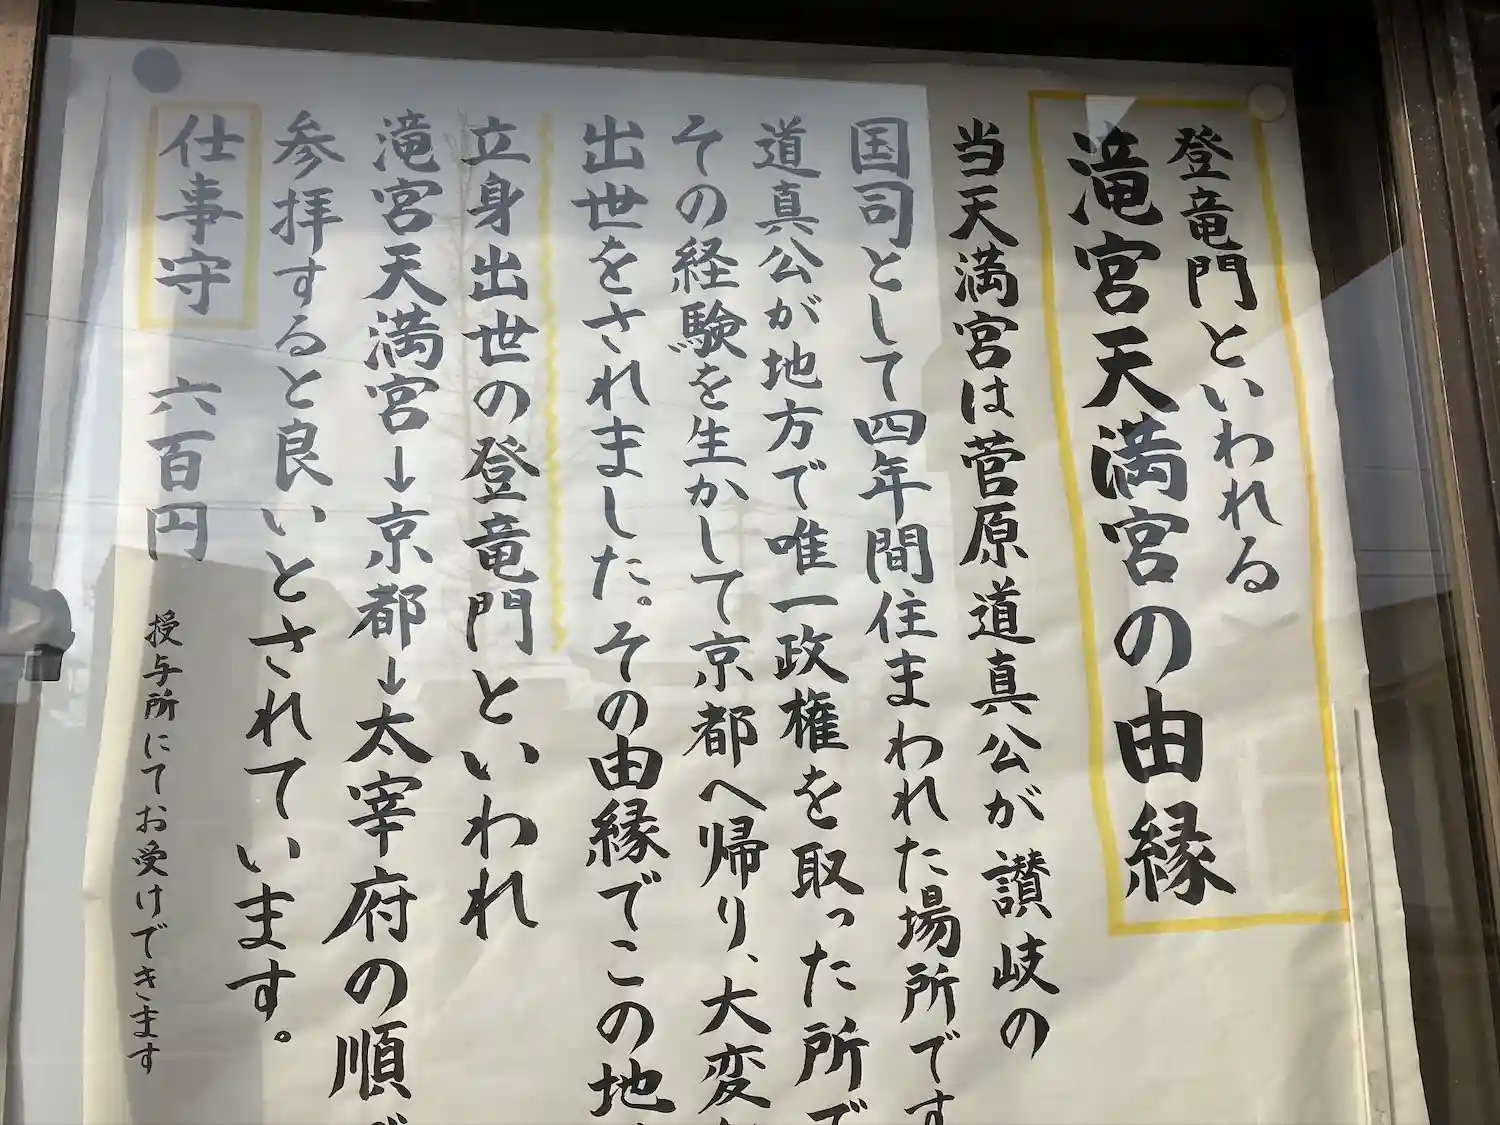 登竜門といわれる
滝宮天満宮の由縁
当天満宮は菅原道真公が讃岐の
国司として四年間住まわれた場所です
道真公が地方で唯一政権を取った所で
その経験を生かして京都へ帰り、大変
出世をされました。その由縁でこの地
立身出世の登竜門といわれ
滝宮天満宮→京都→太宰府の順で
参拝すると良いとされています。
仕事守 六百円 授与所にてお受けできます